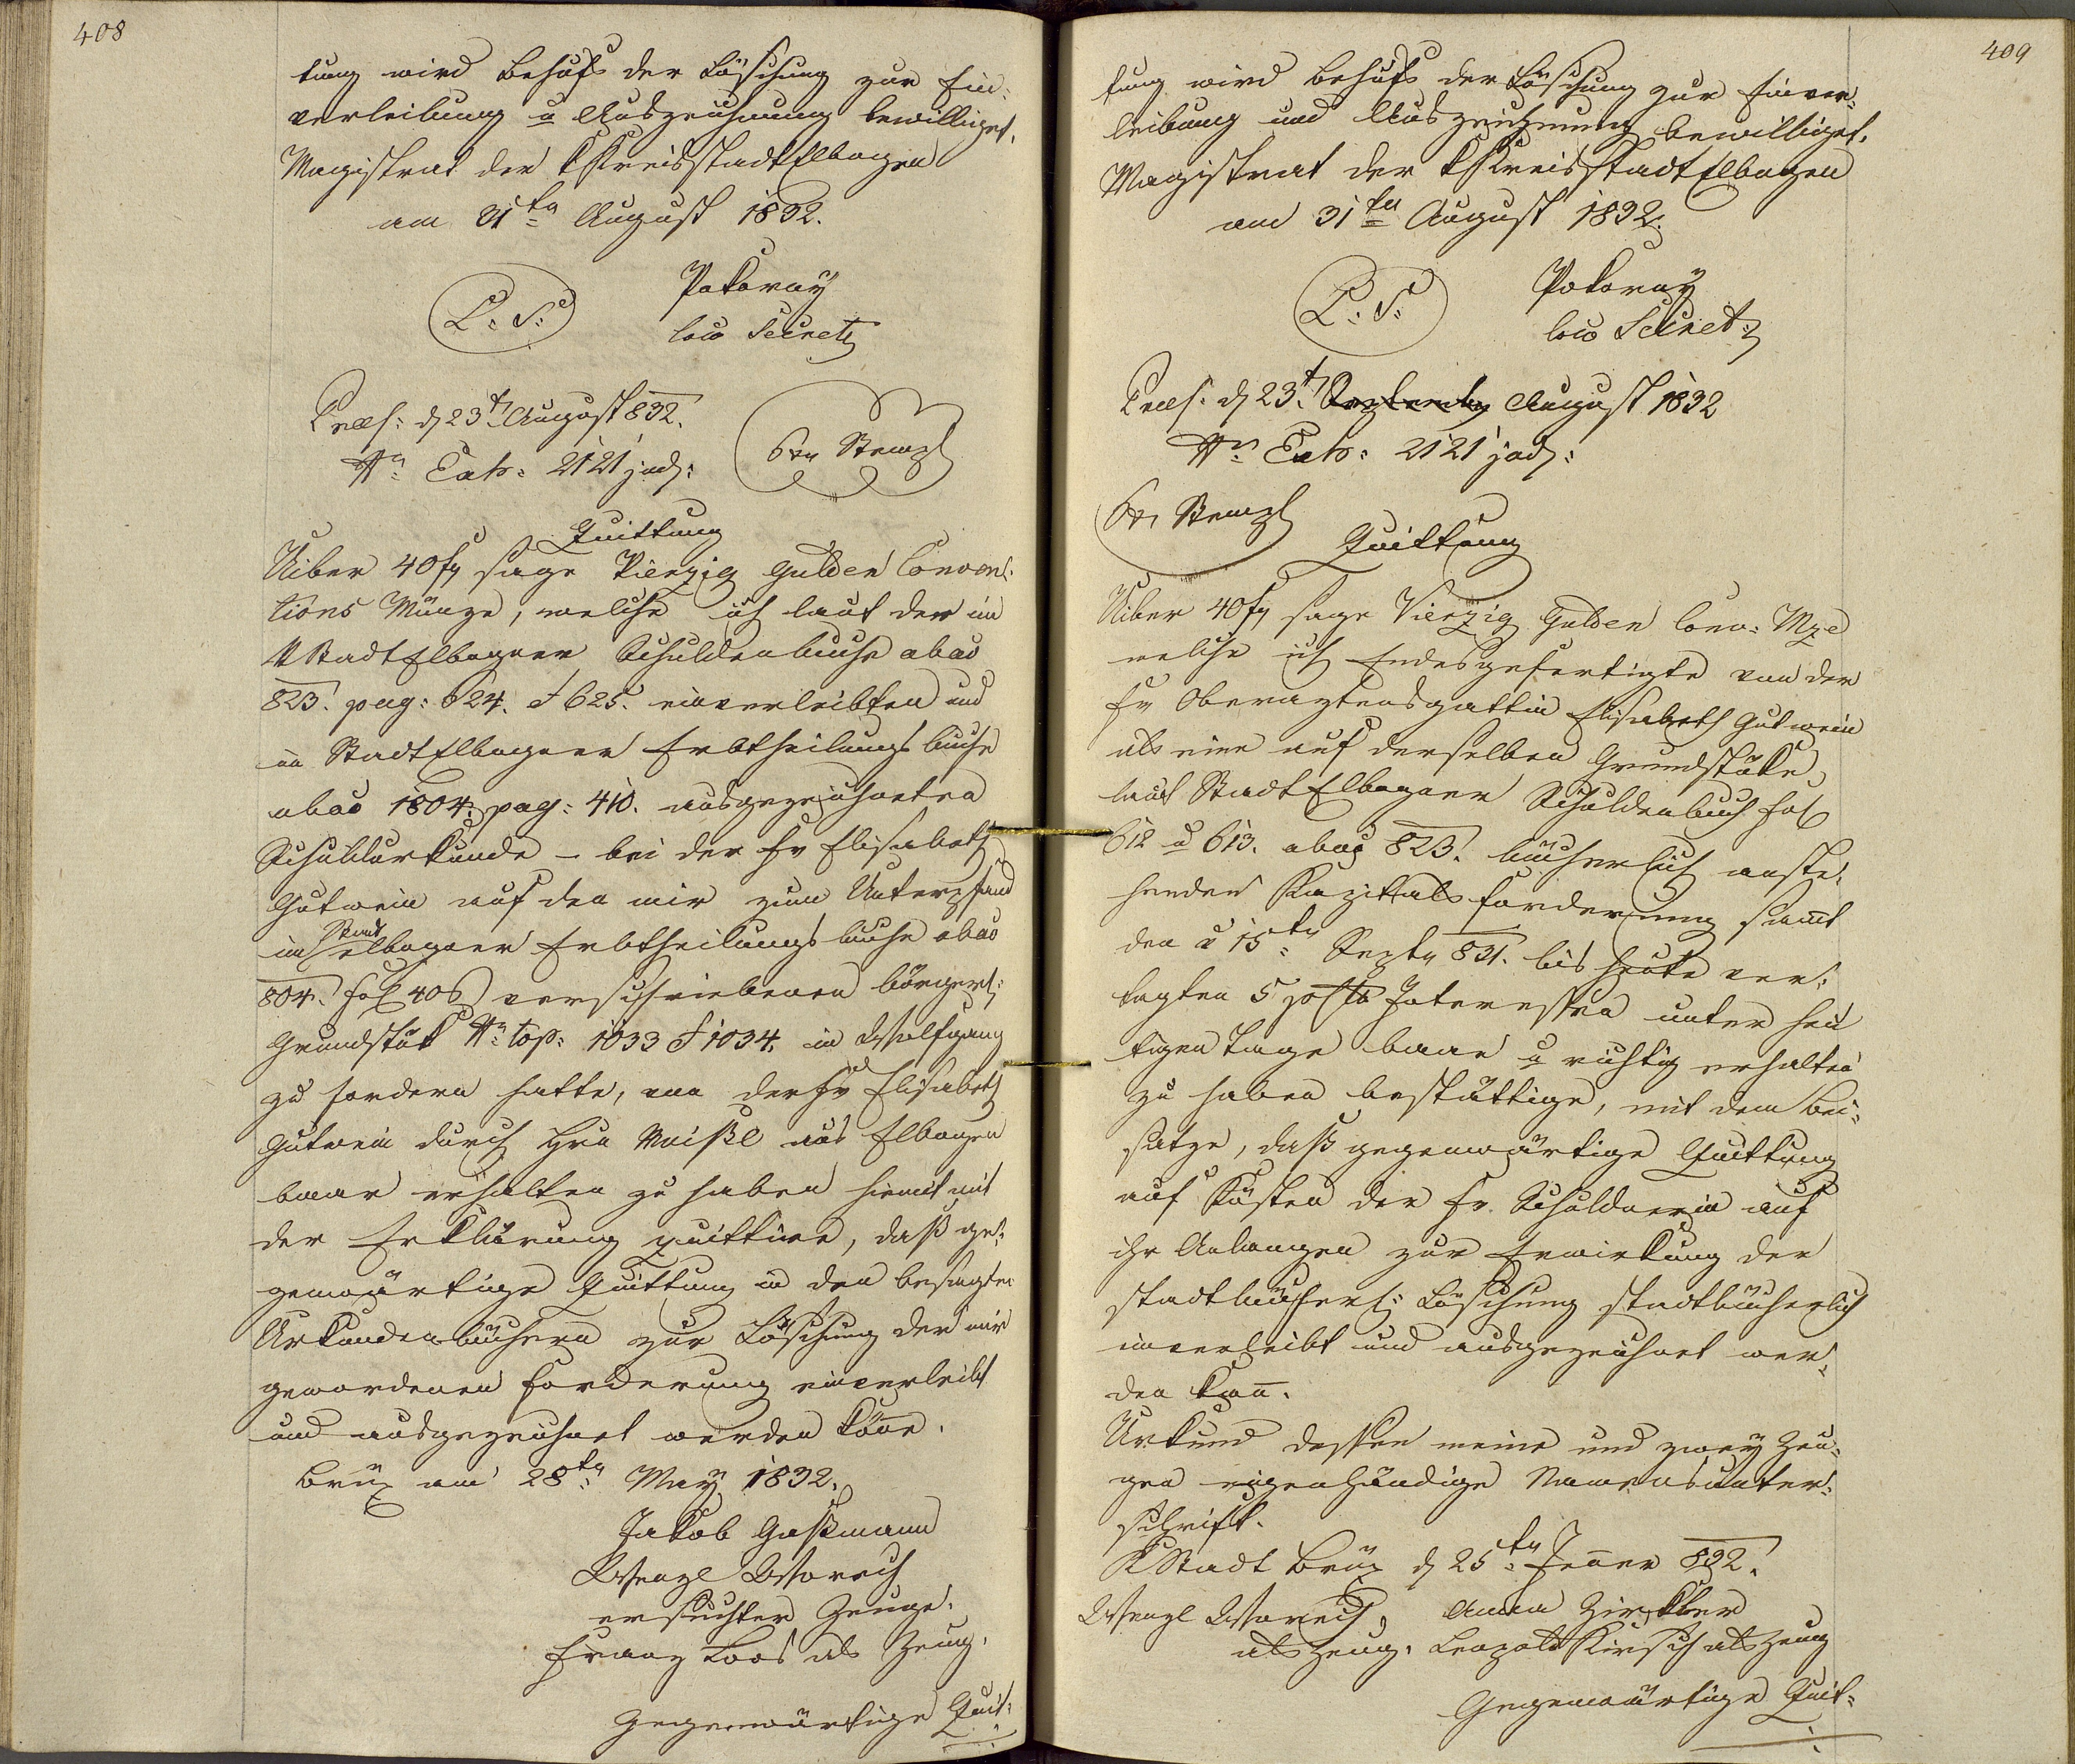 408
tung wird behufs der Löschung zur Ein-
verleibung u Auszeichnung bewilliget.
Magistrat der k Kreisstadt Elbogen
am 31ten August 1832.
L. S. Pokorny
loco Secret.
Praes. d 23t August 832.
Nr. Exh. 2121 jud.
6xr Stempl
Quittung
Uiber 40 fl sage Vierzig Gulden Conven-
tions Münze, welche ich laut der im
k Stadt Elbogner Schuldenbuche abao
823. pag: 624. & 625. einverleibten und
in Stadt Elbogner Erbtheilungsbuche
abao 1804. pag: 410. ausgezeichneten
Schuldurkunde – bei der Fr Elisabeth
Gutwein auf den mir zum Unterpfand
im Stadt elbogner Erbtheilungsbuche abao
804. fol 406 verschriebenen bürgerl.
Grundstük Nr. top. 1033 & 1034. in Wolfgang
zu fordern hatte, von der Fr Elisabeth
Gutwein durch Hrn Meißl aus Elbogen
baar erhalten zu haben hiemit mit
der Erklärung quittire, daß ge-
genwärtige Quittung in den besagten
Urkundenbüchern zur Löschung der mir
gewordenen Forderung einverleibt
und ausgezeichnet werden könne.
Brüx am 28ten May 1832.
Jakob Gaßmann
Wenzl Worech
ersuchter Zeuge.
Franz Loos als Zeug.
Gegenwärtige Quit-
409
tung wird behufs der Löschung zur Einver-
leibung und Auszeichnung bewilliget.
Magistrat der k Kreisstadt Elbogen
am 31ten August 1832.
L. S. Pokorny
loco Secret.
Praes. d 23t. August 1832
Nr. Exh. 2121 jud.
6xr Stempl
Quittung
Uiber 40 fl sage Vierzig Gulden Conv. Mze
welche ich Endesgefertigte von der
Fr Oberamtensgattin Elisabeth Gutwein
als eine auf derselben Grundstüke
laut Stadt Elbogner Schuldenbuch fol
612 u 613. abao 823. bücherlich anste-
henden Kapitalsforderung samt
den v 15ten Septr 831. bis heute ver-
tagten 5 percto Interessen unter heu
tigen Tage baar u richtig erhalten
zu haben bestättige, mit dem Bei-
satze, daß gegenwärtige Quittung
auf Kösten der Fr. Schuldnerin auf
ihr Anlangen zur Erwirkung der
stadtbücherl. Löschung stadtbücherlich
inverleibt und ausgezeichnet wer-
den kan̄.
Urkund dessen meine und zwey Zeu-
gen eigenhändige Namensunter-
schrift.
K Stadt Brüx d 25ten Jener 832.
Wenzl Worech, Anna Zirkler
als Zeug. Leopold Kirsch als Zeug
Gegenwärtige Quit-